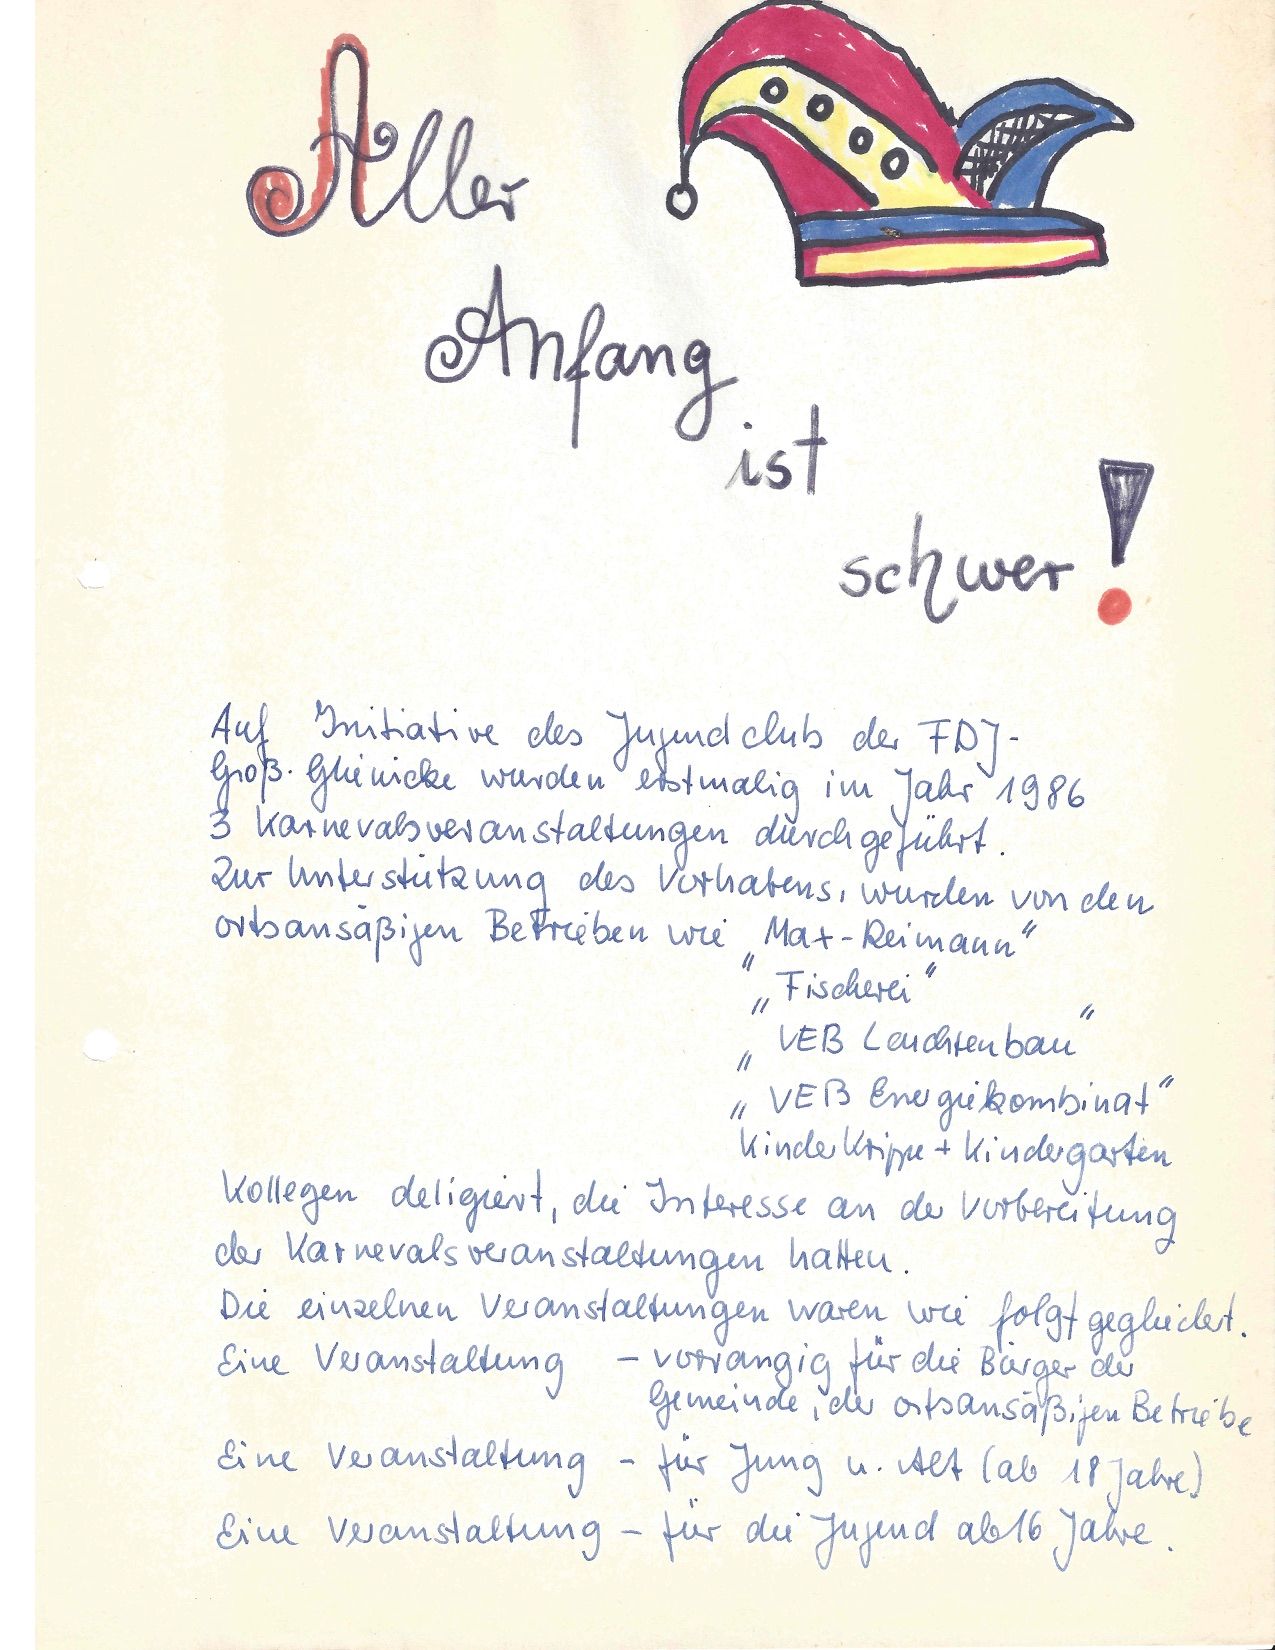 Aller
Anfang
ist
schwer!
Auf Initiative des Jugendclub der FDJ-
Groß-Glienicke wurden erstmalig im Jahr 1986
3 Karnevalsveranstaltungen durchgeführt.
Zur Unterstützung des Vorhabens, wurden von den
ortsansäßigen Betrieben wie „Max-Reimann“
„Fischerei“
„VEB Leuchtenbau“
„VEB Energiekombinat“
Kinderkrippe + Kindergarten
Kollegen deligiert, die Interesse an der Vorbereitung
der Karnevalsveranstaltungen hatten.
Die einzelnen Veranstaltungen waren wie folgt gegliedert.
Eine Veranstaltung – vorrangig für die Bürger der
Gemeinde, der ortsansäßigen Betriebe
Eine Veranstaltung – für Jung u. Alt (ab 18 Jahre)
Eine Veranstaltung – für die Jugend ab 16 Jahre.